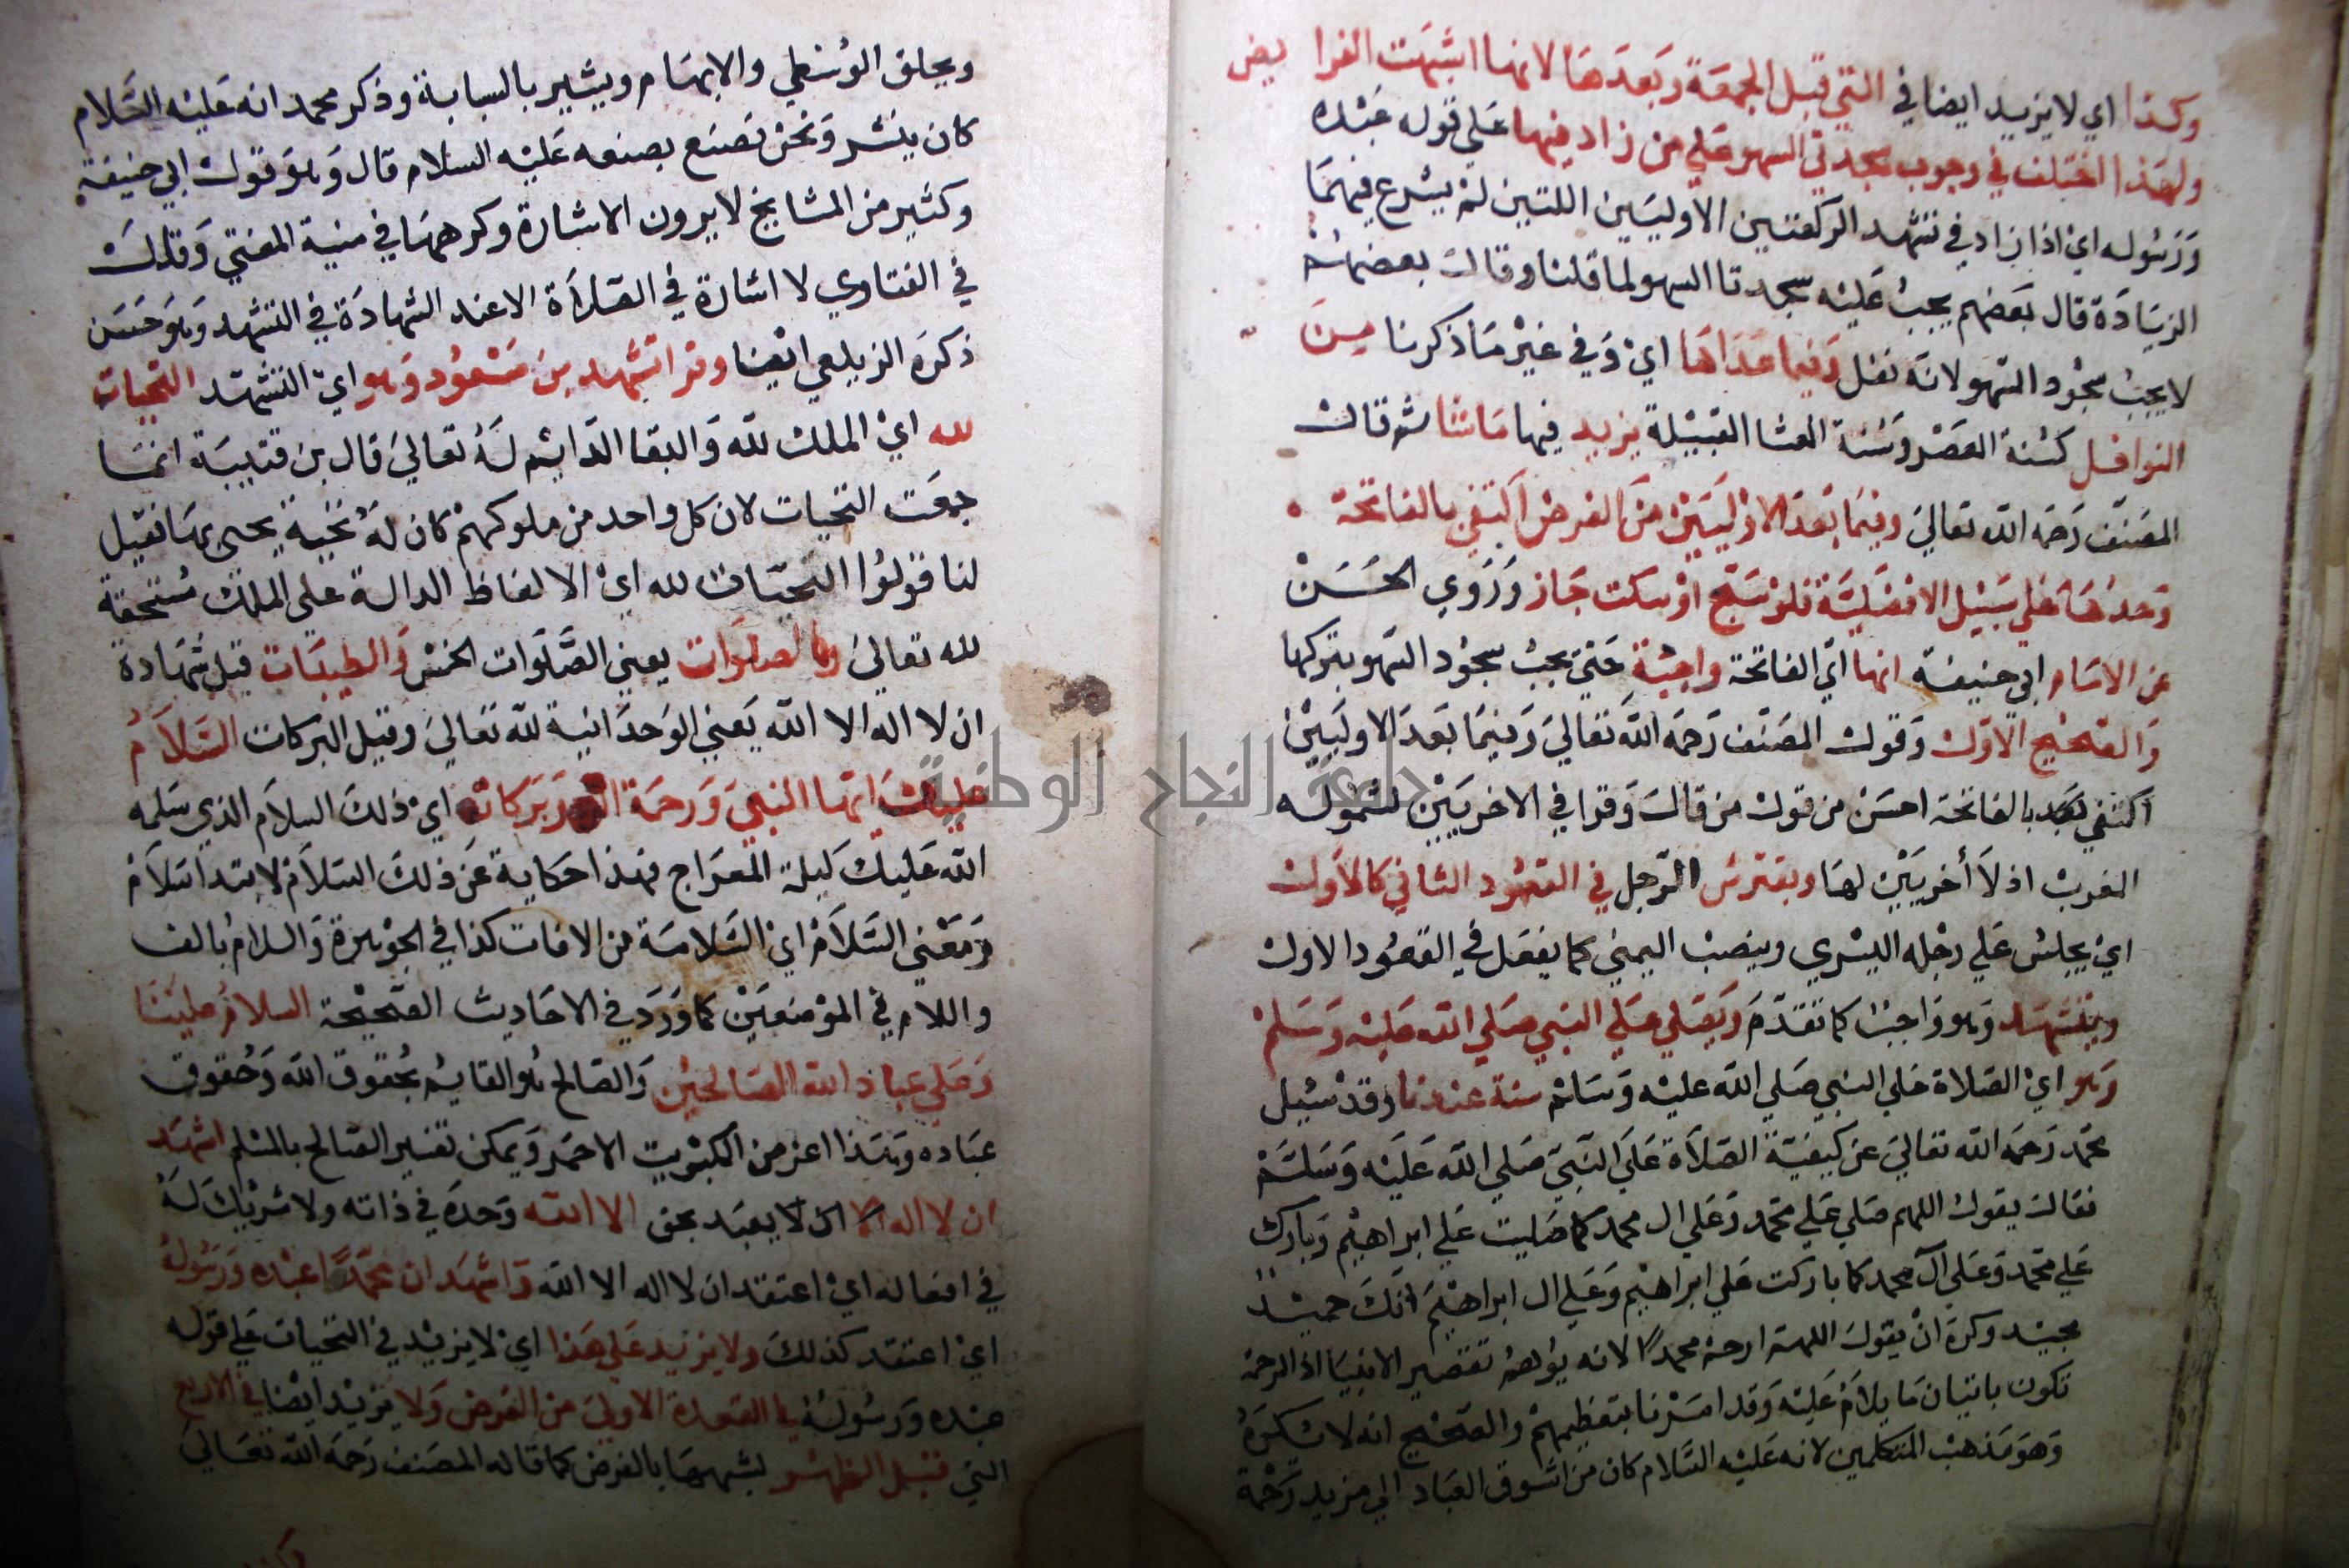 ويحلق الوسطي والابهام ويشير بالسبابة وذكر محمد انه عليه السلام
كان ينشر ونحن نصنع بصنعه عليه السلام قال وهو قول ابي حنيفة
وكثير من المشايخ لا يرون الاشارة وكرهها في منية المفتي وقال
في الفتاوي لا اشارة في الصلاة الا عند الشهادة في التشهد وهو حسن
ذكره الزيلعي ايضا وقرا تشهد بن مسعود وهو اي التشهد التحيات
لله اي الملك لله والبقا الدايم له تعالي قال بن قتيبة انما
جمعت التحيات لان كل واحد من ملوكهم كان له تحية يحيي بها فقيل
لنا قولوا التحيات لله اي الالفاظ الدالة علي الملك مستحقة
لله تعالي والصلوات يعني الصلوات الخمس والطيبات قيل شهادة
ان لا اله الا الله يعني الوحدانية لله تعالي وقيل البركات السلام
عليك ايها النبي ورحمة الله وبركاته اي ذلك السلام الذي سلمه
الله عليك ليلة المعراج فهذا حكاية عن ذلك السلام لا ابتدا سلام
ومعني السلام اي السلامة من الافات كذا في الجوهرة والسلام بالف
واللام في الموضعين كما ورد في الاحاديث الصحيحة السلام علينا
وعلي عباد الله الصالحين والصالح هو القايم بحقوق الله وحقوق
عباده وهذا اعز من الكبريت الاحمر ويمكن تفسير الصالح بالمسلم اشهد
ان لا اله الا اي لا يعبد بحق الا الله وحده في ذاته ولا شريك له
في افعاله اي اعتقد ان لا اله الا الله واشهد ان محمدا عبده ورسوله
اي اعتقد كذلك ولا يزيد علي هذا اي لا يزيد في التحيات علي قوله
عبده ورسوله في القعدة الاولي من الفرض ولا يزيد ايضا في الاربع
التي قبل الظهر لشبهها بالفرض كما قاله المصنف رحمه الله تعالي
وكذا اي لا يزيد ايضا في التي قبل الجمعة وبعدها لانها اشبهت الفرا يض
ولهذا اختلف في وجوب سجدتي السهو علي من زاد فيها علي قوله عبده
ورسوله اي اذا زاد في تشهد الركعتين الاوليين اللتين لم يشرع فيهما
الزيادة قال بعضهم يجب عليه سجدتا السهو لما قلنا وقال بعضهم
لا يجب سجود السهو لانه نفل وفيما عداها اي وفي غير ما ذكرنا من
النوافل كسنة العصر وسنة العشا القبيلة يزيد فيها ما شا ثم قال
المصنف رحمه الله تعالي وفيما بعد الاوليين من الفرض اكتفي بالفاتحة
وحدها علي سبيل الافضلية فلو سبح او سكت جاز وروي الحسن
عن الامام ابي حنيفة انها اي الفاتحة واجبة حتي يجب سجود السهو بتركها
والصحيح الاول وقول المصنف رحمه الله تعالي وفيما بعد الاوليين
اكتفي بالفاتحة احسن من قول من قال وقرا في الاخريين لشموله
المغرب اذ لا أخريين لها ويفترش الرجل في القعود الثاني كالاول
اي يجلس علي رجله اليسري وينصب اليمني كما يفعل في القعود الاول
ويتشهد وهو واجب كما تقدم ويصلي علي النبي صلي الله عليه وسلم
وهو اي الصلاة علي النبي صلي الله عليه وسلم سنة عندنا وقد سئيل
محمد رحمه الله تعالي عن كيفية الصلاة علي النبي صلي الله عليه وسلم
فقال يقول اللهم صلي علي محمد وعلي ال محمد كما صليت علي ابراهيم وبارك
علي محمد وعلي آل محمد كما باركت علي ابراهيم وعلي ال ابراهيم انك حميد
مجيد وكره ان يقول اللهم ارحم محمدا لانه يوهم تقصير الانبيا اذ الرحمة
تكون باتيان ما يلام عليه وقد امرنا بتعظيمهم والصحيح انه لا يكره
وهو مذهب المتكلمين لانه عليه السلام كان من اشوق العباد الي مزيد رحمة
جامعة النجاح الوطنية